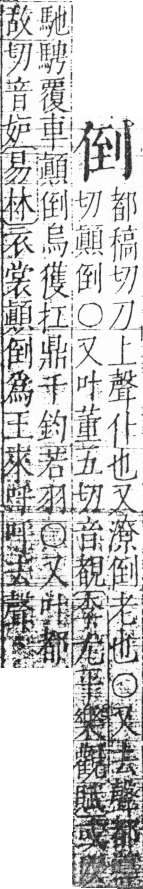 倒
都稿切刀上聲仆也又潦倒老也○又去聲都
切顚倒○又叶董五切音覩李尤平樂觀賦或
馳騁覆車顚倒烏獲扛鼎千鈞若羽○又叶都
故切音妒易林衣裳顚倒爲王來呼呼去聲